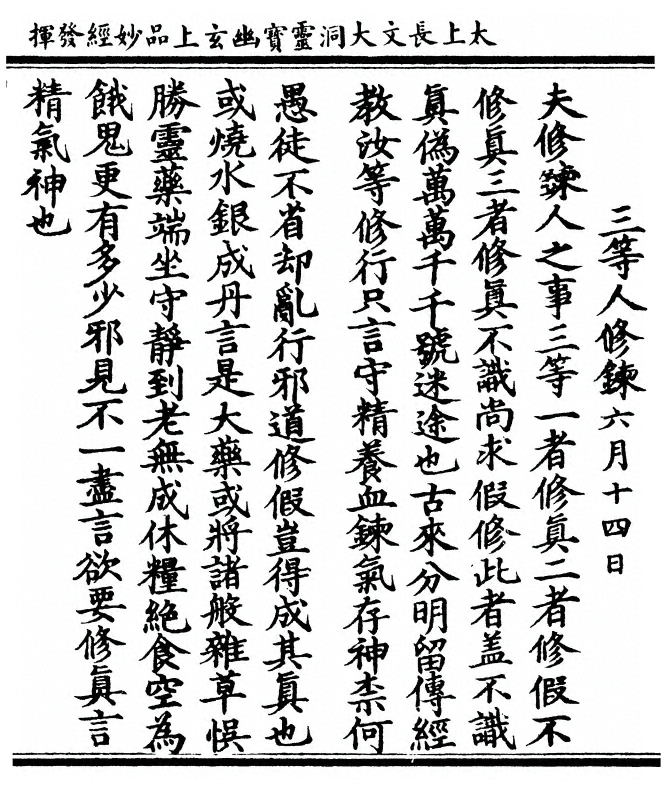 太上長文大洞靈寶幽玄上品妙經發揮
三等人修鍊六月十四日
夫修鍊人之事三等一者修眞二者修假不
修眞三者修眞不識尚求假修此者盖不識
眞僞萬萬千千號迷途也古來分明留傳經
教汝等修行只言守精養血鍊氣存神柰何
愚徒不省却亂行邪道修假豈得成其眞也
或燒水銀成丹言是大藥或將諸般雜草悞
勝靈藥端坐守靜到老無成休糧絶食空為
餓鬼更有多少邪見不一盡言欲要修眞言
精氣神也